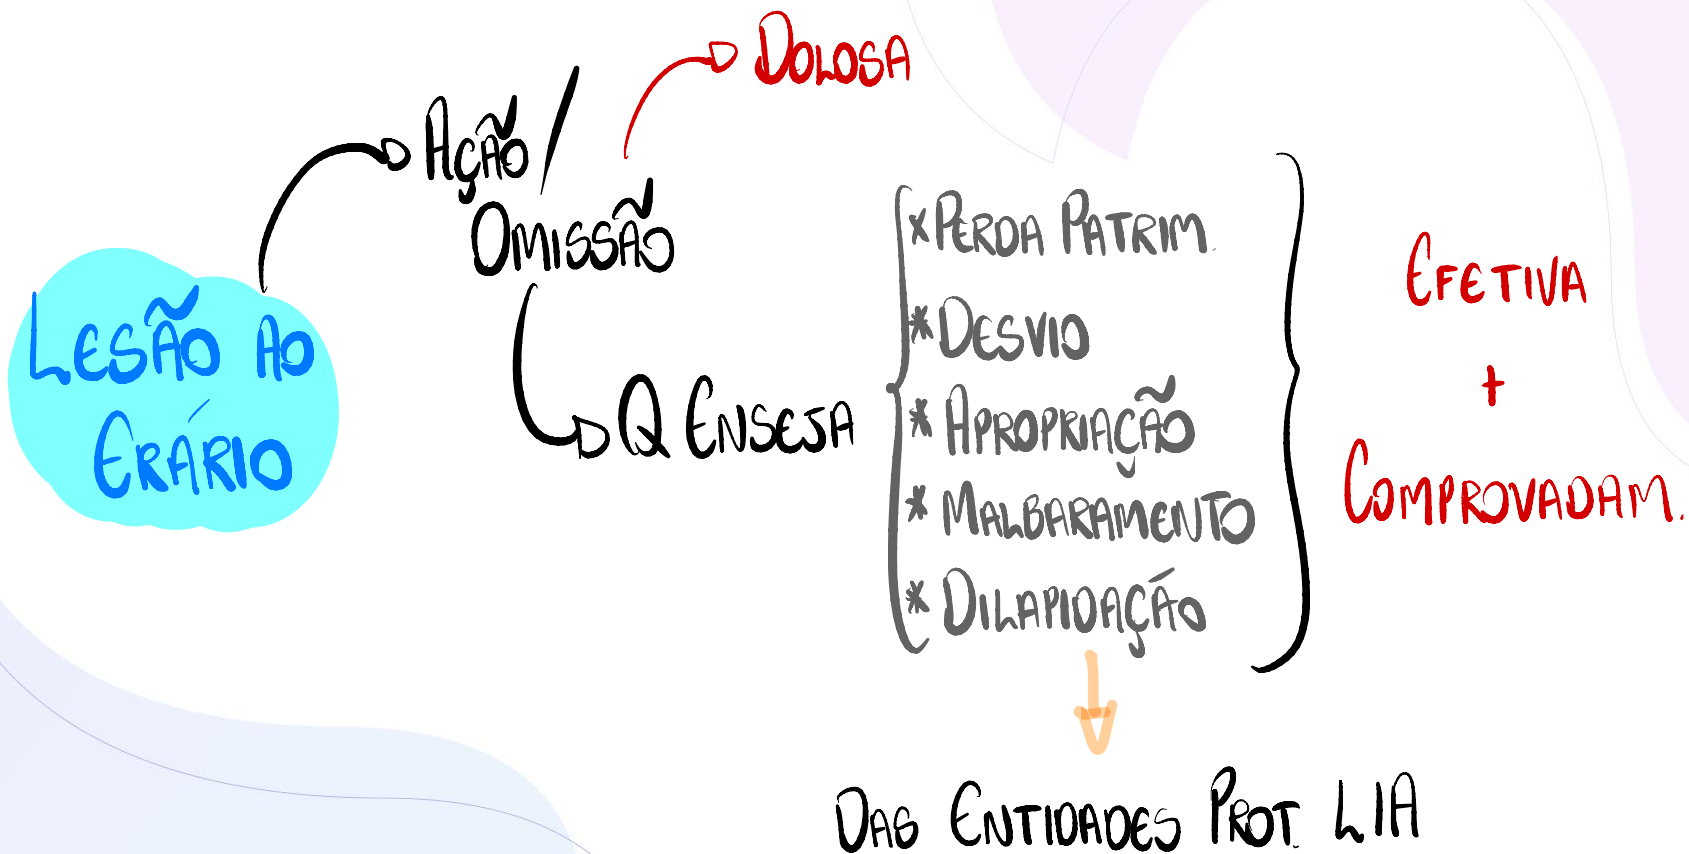 DOLOSA
AÇÃO/
OMISSÃO
LESÃO AO
ERÁRIO
Q ENSEJA
* PERDA PATRIM.
* DESVIO
* APROPRIAÇÃO
* MALBARAMENTO
* DILAPIDAÇÃO
EFETIVA
+
COMPROVADAM.
DAS ENTIDADES PROT. LIA